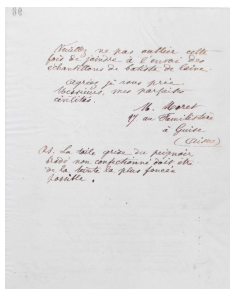 Veuillez ne pas oublier cette
fois de joindre à l'envoi des
échantillons de batiste de laine.
Agréez, je vous prie
Messieurs, mes parfaites
civilités.
M. Moret
17 au Familistère
à Guise
(Aisne)
P.S. La toile grise du peignoir
brodé non confectionné doit être
de la teinte la plus foncée
possible.